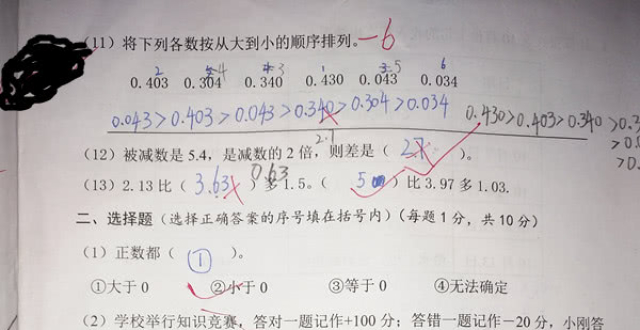 (11) 将下列各数按从大到小的顺序排列。-6
2 4 3 1 5 6
0.403 0.304 0.340 0.430 0.043 0.034
0.043>0.403>0.043>0.340>0.304>0.034 0.430>0.403>0.340 >0.3
>0.0
>0.
(12) 被减数是 5.4，是减数的 2 倍，则差是（ 2.7 ）。
2.7
(13) 2.13 比（ 3.63 ）多 1.5。（ 5 ）比 3.97 多 1.03.
0.63
二、选择题（选择正确答案的序号填在括号内）（每题 1 分，共 10 分）
(1) 正数都（ ① ）。
①大于 0 ②小于 0 ③等于 0 ④无法确定
(2) 学校举行知识竞赛，答对一题记作+100 分；答错一题记作－20 分，小刚答